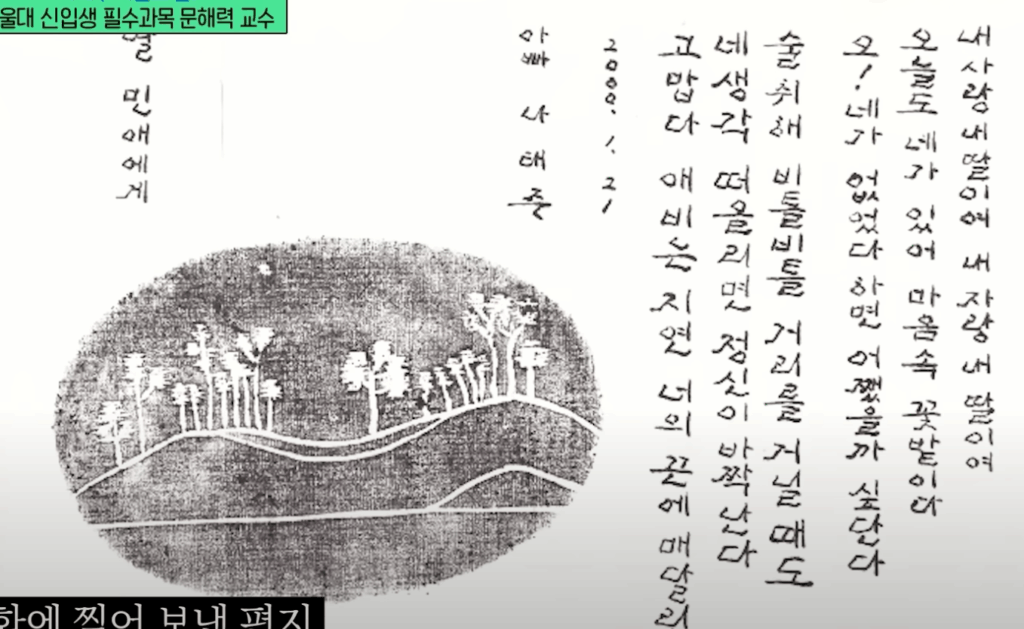 울대 신입생 필수과목 문해력 교수
내 사랑 내 딸이여 내 자랑 내 딸이여
오늘도 네가 있어 마음속 꽃밭이다
오! 네가 없었다 하면 어쨌을까 싶단다
술 취해 비틀비틀 거리를 거닐 때도
네 생각 떠올리면 정신이 바짝 난다
고맙다 애비는 지연 너의 끈에 매달리
2000. 1. 21
아빠 나태준
민애에게
화에 찍어 보낸 편지